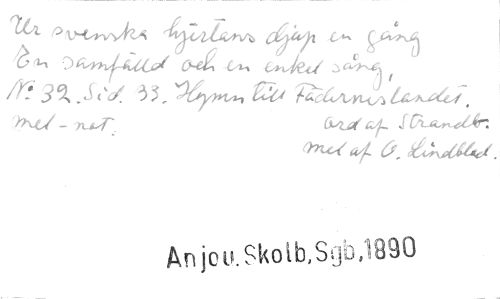 Ur svenska hjertans djup en gång
En samfälld och en enkel sång,
No 32. Sid. 33. Hymn till Fäderneslandet.
mel-not. ord af Strandb.
mel af O. Lindblad.
Anjou. Skolb, Sgb, 1890